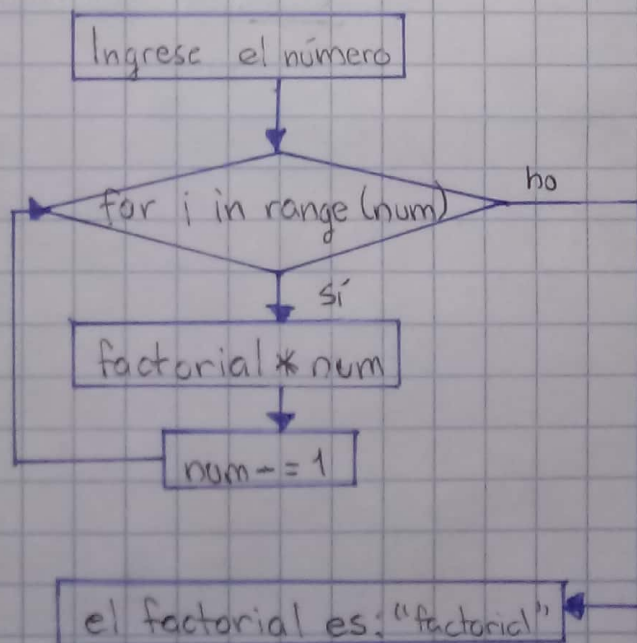 Ingrese el número
for i in range (num)
no
sí
factorial * num
num -= 1
el factorial es: "factorial"